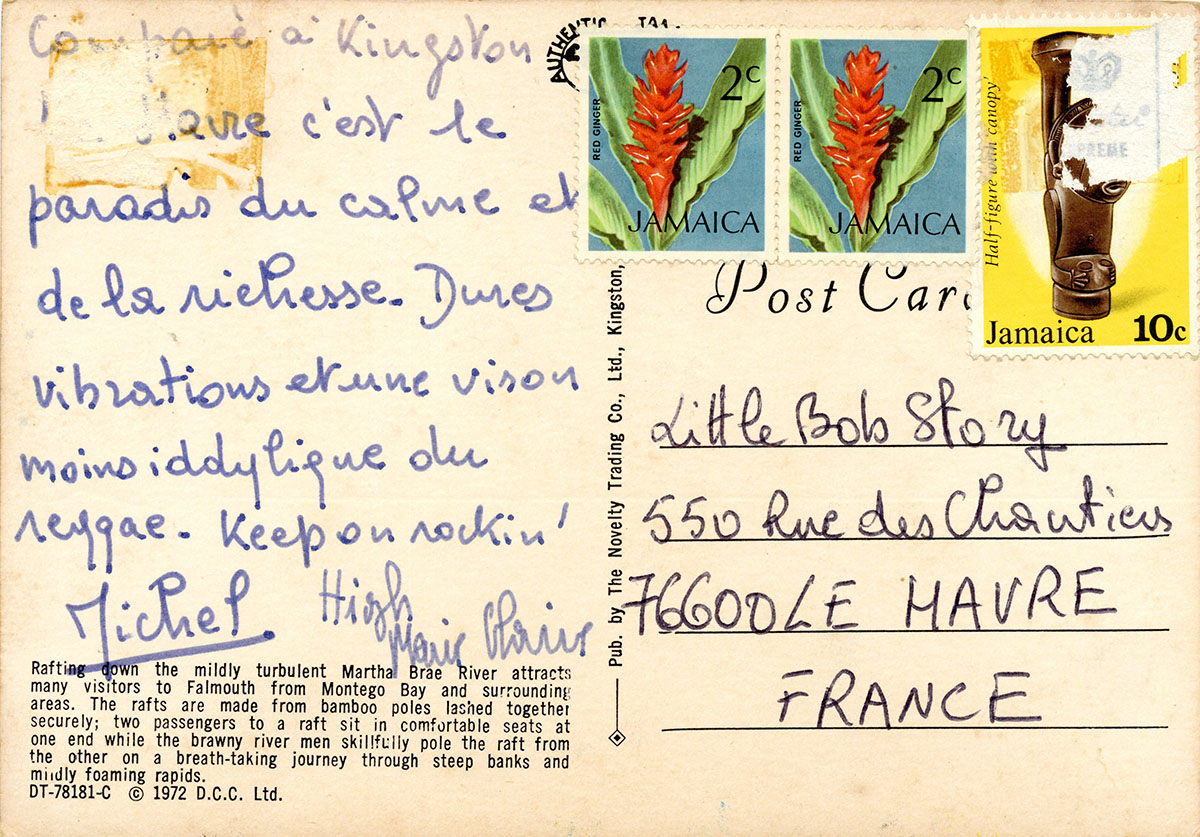 Comparé à Kingston
Havre c'est le
paradis du calme et
de la richesse. Dures
vibrations et une vison
moins iddylique du
reggae. Keep on rockin'
Michel. High
Marie Claire
Rafting down the mildly turbulent Martha Brae River attracts
many visitors to Falmouth from Montego Bay and surrounding
areas. The rafts are made from bamboo poles lashed together
securely; two passengers to a raft sit in comfortable seats at
one end while the brawny river men skillfully pole the raft from
the other on a breath-taking journey through steep banks and
mildly foaming rapids.
DT-78181-C © 1972 D.C.C. Ltd.
Pub. by The Novelty Trading Co., Ltd., Kingston,
AUTHENTIC
RED GINGER
2c
JAMAICA
RED GINGER
2c
JAMAICA
Half-figure with canopy'
Jamaica 10c
Post Card
Little Bob Story
550 Rue des Chantiers
76600 LE HAVRE
FRANCE